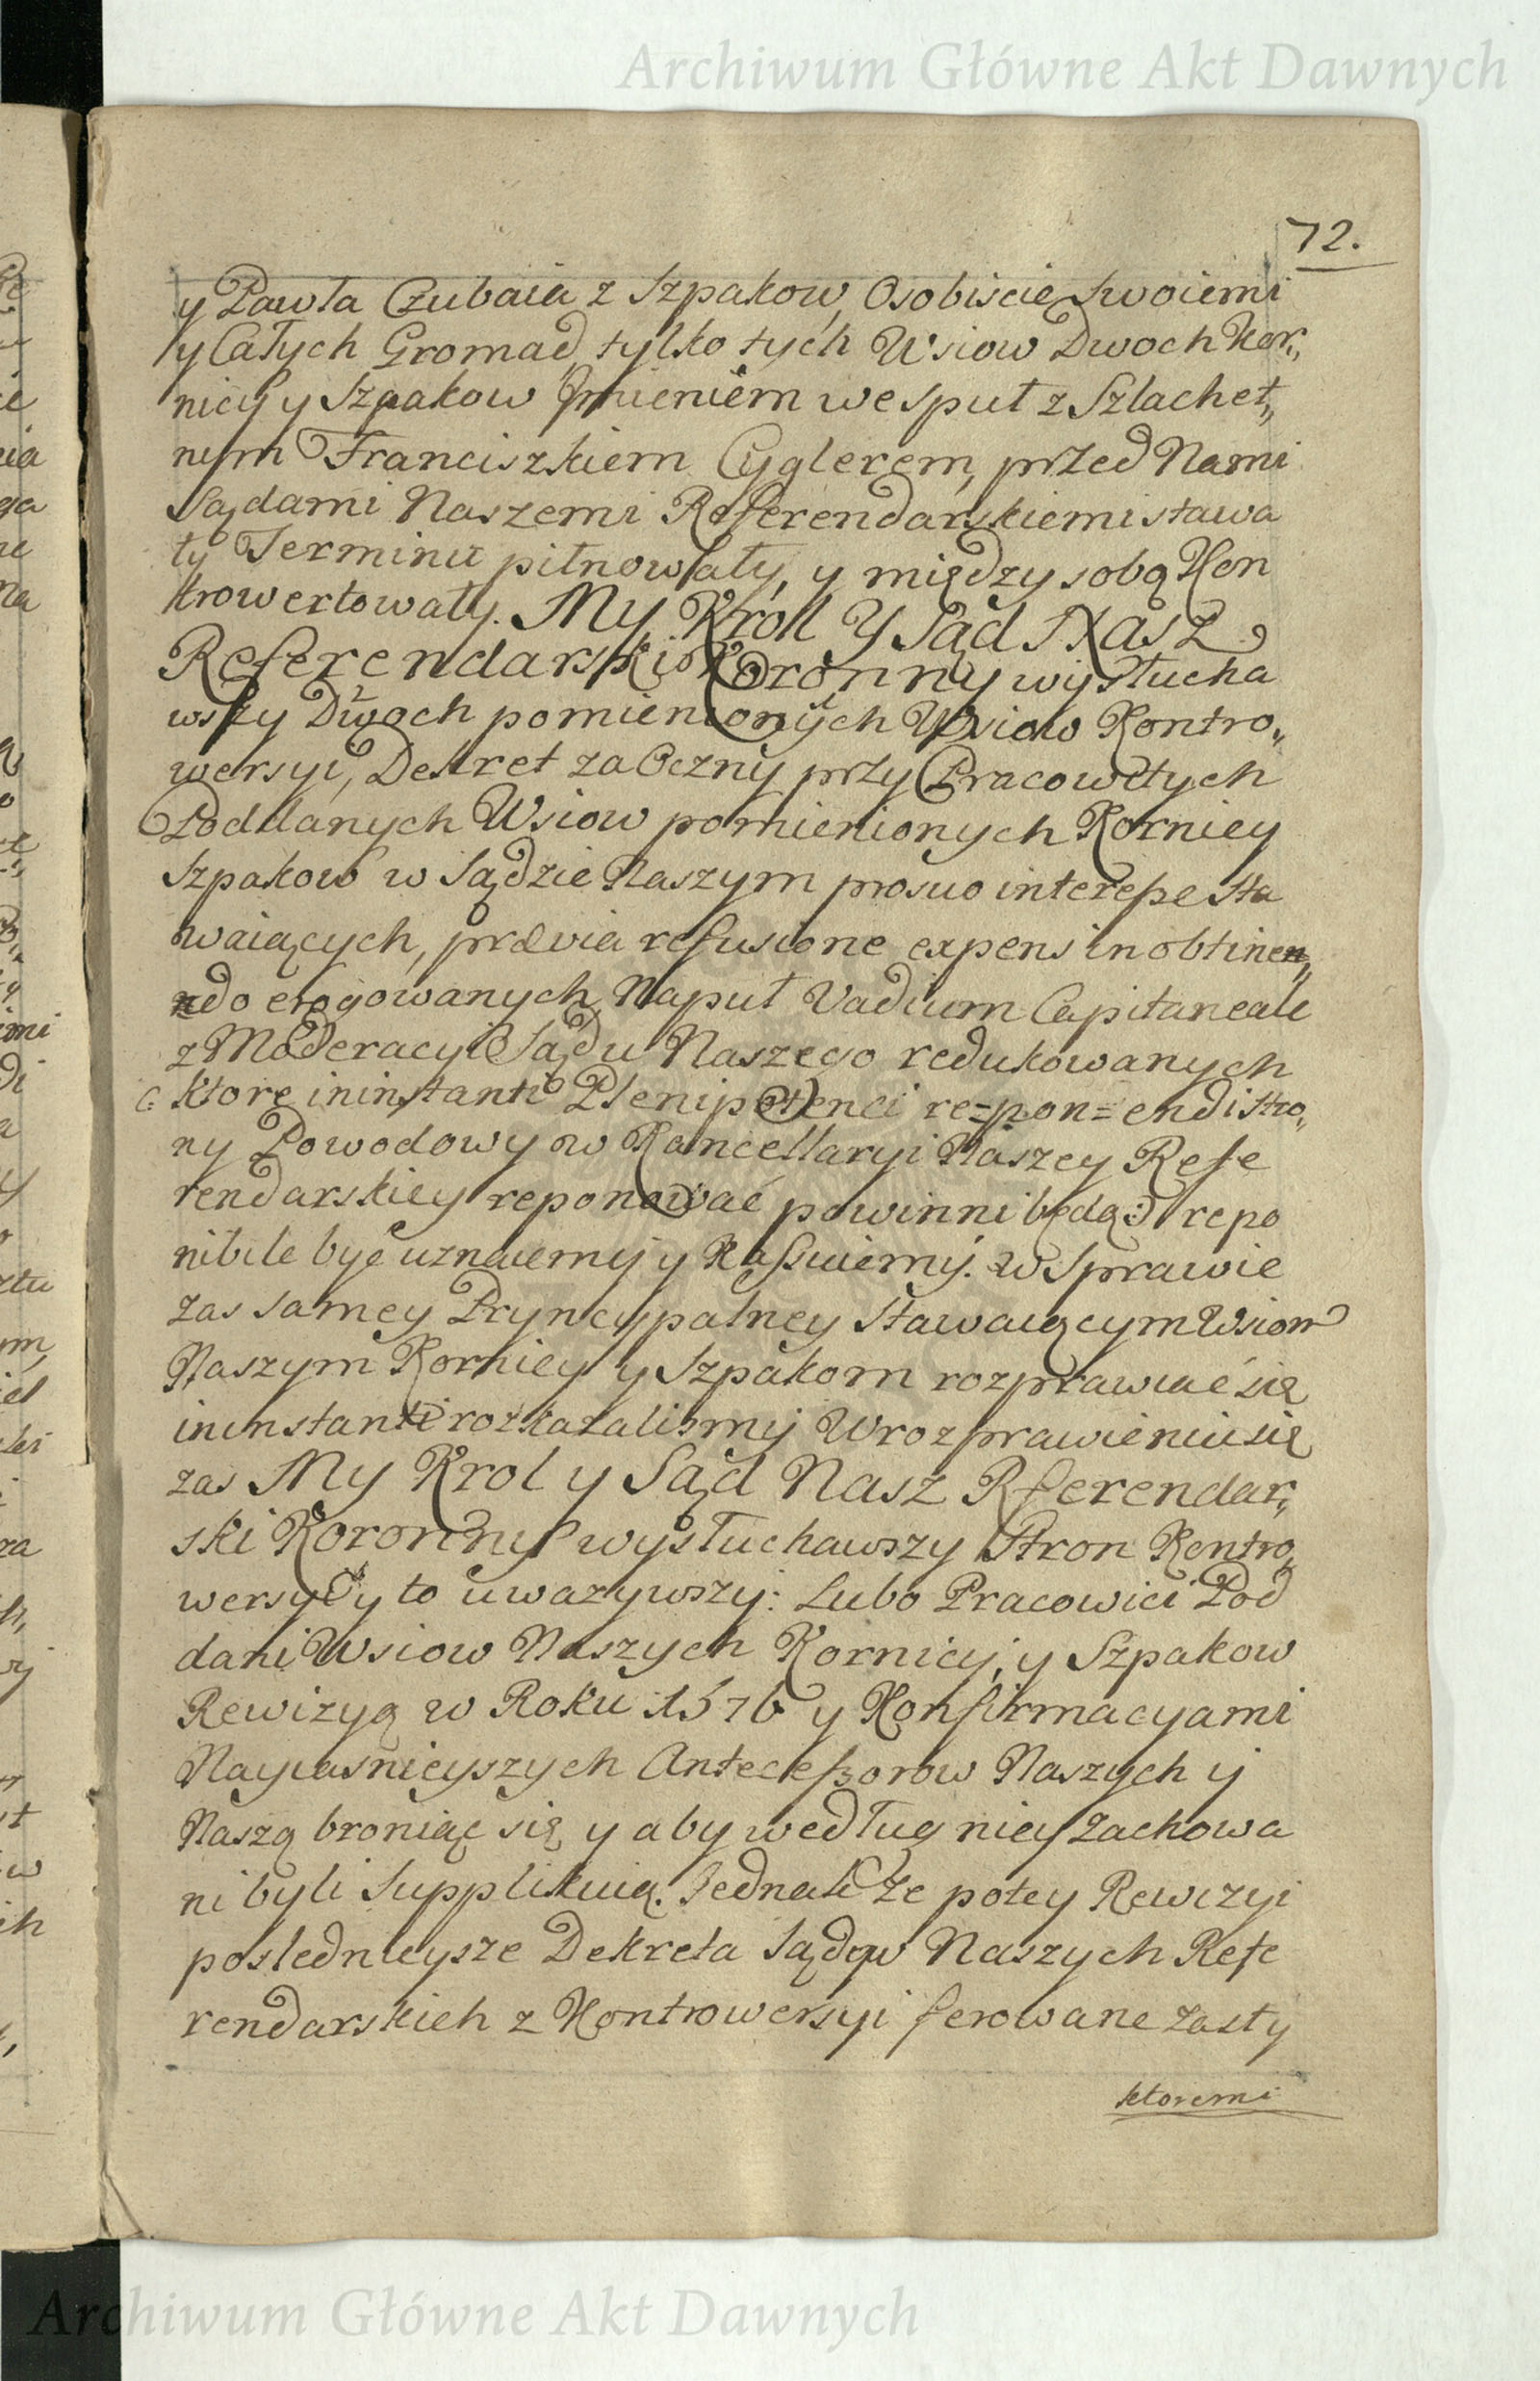 Archiwum Główne Akt Dawnych
72.
y Pawła Czubaia z Szpakow, Osobiscie Swoiemi
y Całych Gromad, tylko tych Wsiow Dwoch Kor„
nicy y Szpakow Imieniem wesput z Szlachet„
nym Franciszkiem Cyglerem, przed Nami
Sądami Naszemi Referendarskiemi stawa
ły Terminu pilnowały, y między sobą Kon
trowertowały. My Krol Y Sąd Nasz
Referendarski Koronny wysłucha
wszy Dwoch pomienionych Wsiow Kontro„
wersyi, Dekret zaoczny przy Pracowitych
Poddanych Wsiow pomienionych Korniey
Szpakow w Sądzie Naszym prosuo interesse sta
waiących, prævia refusione expens in obtinen„
ndo erogowanych, Naput Vadium Capitaneale
z Moderacyi Sądu Naszego redukowanych
C: ktore ininstanti Plenipotenci re=pon=endi stro„
ny Powodowy w Kancellaryi Naszey Refe
rendarskiey reponować powinni będą :) repo
nibile być uznaiemy y Kassuiemy. w Sprawie
zas samey Pryncypalney Stawaiącym Wsiom
Naszym Korniey y Szpakom rozprawiać się
ininstanti rozkazalismy Wrozprawieniu się
zas My Krol y Sąd Nasz Rferendar„
ski Koronny wysłuchawszy Stron Kontro„
wersyi y to uwazywszy: Lubo Pracowici Pod
dani Wsiow Naszych Kornicy, y Szpakow
Rewizyą w Roku 1576 y Konfirmacyami
Nayiasnieyszych Antecessorow Naszych y
Naszą broniąc się y aby według niey zachowa
ni byli Supplikuią. Jednak ze potey Rewizyi
poslednieysze Dekreta Sądow Naszych Refe
rendarskich z Kontrowersyi ferowane zaszły
ktoremi
Archiwum Główne Akt Dawnych